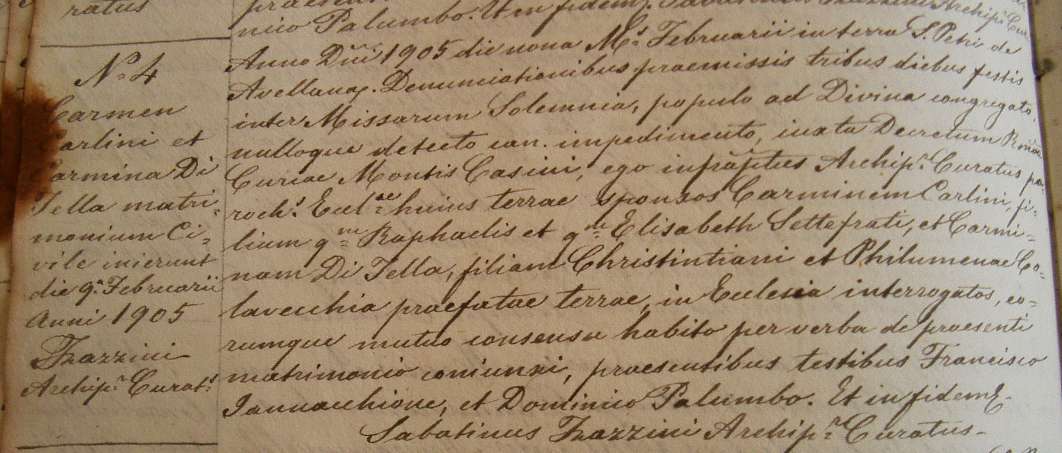 ratus
nico Palumbo. Et in fidem.
Nº 4
Carmen
Carlini et
Carmina Di
Tella matri-
monium Ci-
vile inierunt
die 9ª Februarii
Anni 1905
Frazzini
Archip.r Curat.s
Anno Dñi 1905 die nona M.s Februarii in terra S. Petri de
Avellana. Denunciationibus praemissis tribus diebus festis
inter Missarum Solemnia, populo ad Divina congregato,
nulloque detecto can. impedimento, iuxta Decretum Rmae
Curiae Montis Casini, ego infraptus Archip.r Curatus pa-
roch.s Eccl.ae huius terrae sponsos Carminem Carlini, fi-
lium q.m Raphaelis et q.dle Elisabeth Settefrati, et Carmi-
nam Di Tella, filiam Christintiani et Philumenae Co-
lavecchia praefatae terrae, in Ecclesia interrogatos, eo-
rumque mutuo consensu habito per verba de praesenti
matrimonio coniunxi, praesentibus testibus Francisco
Iannacchione, et Dominico Palumbo. Et in fidem.
Sabatinus Frazzini Archip.r Curatus